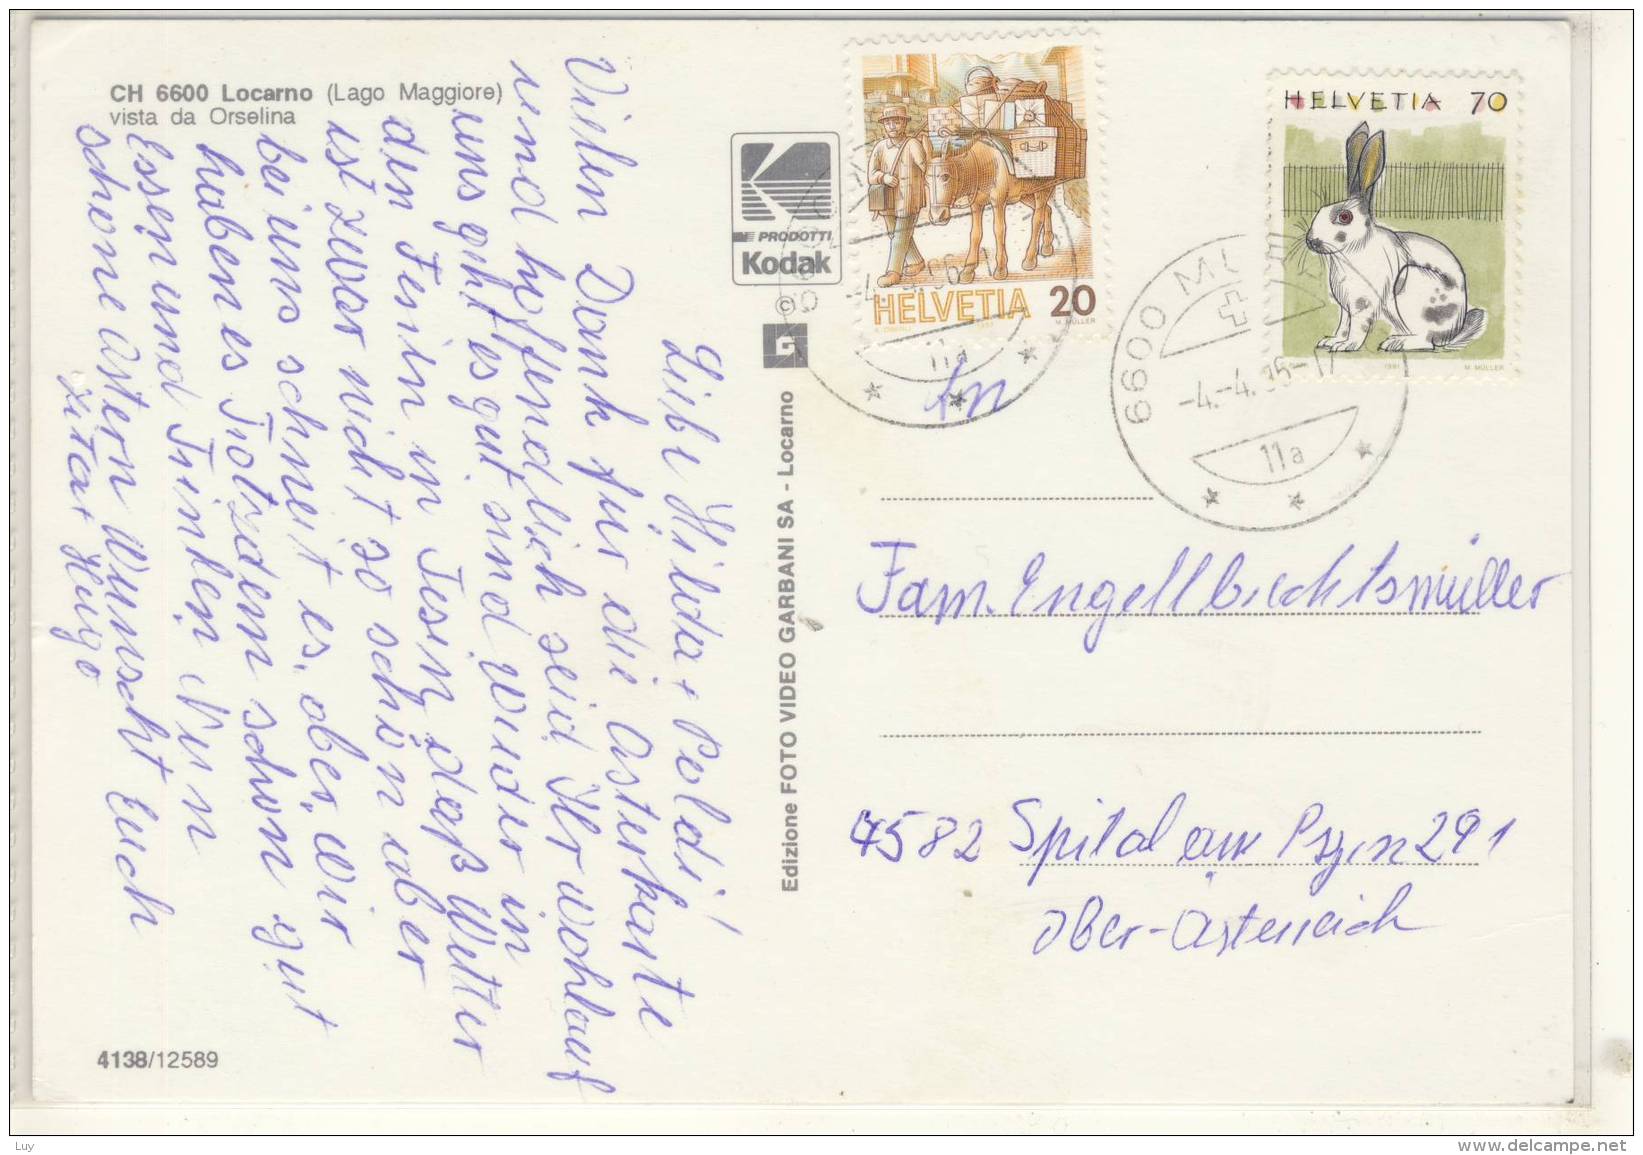 CH 6600 Locarno (Lago Maggiore)
vista da Orselina
PRODOTTI
Kodak
©
G
Edizione FOTO VIDEO GARBANI SA - Locarno
4138/12589
HELVETIA 20
M. MÜLLER
HELVETIA 70
1991 M. MÜLLER
6600
-4.-4.
11a
11a
Liebe Hilda + Poldi!
Vielen Dank für die Osterkarte
und hoffendlich seid Ihr wohlauf
uns geht es gut, sind wieder in
den Ferien in Tesin, daß Wetter
ist zwar nicht so schön aber
bei uns schneit es, aber, wir
haben es Trotzdem schön gut
Essen und Trinken. Nun
schöne Ostern Wünscht Euch
Zita + Hugo
Fam. Engellbrechtsmüller
4582 Spital am Pyhrn 291
Ober-Österreich
Luy
www.delcampe.net